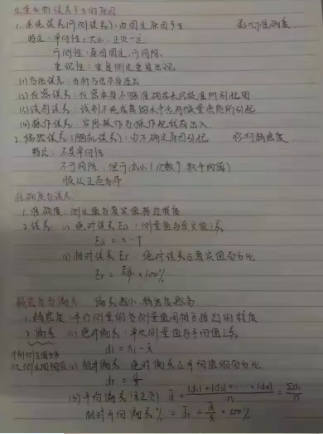 定量分析误差产生的原因
1. 系统误差(可测误差): 由固定原因产生 影响准确度
特点: 单向性: 大小、正负一定
可测性: 原因固定, 可消除
重复性: 重复测定重复出现
(1) 方法误差: 分析方法不够完善
(2) 仪器误差: 仪器本身不够准确或未经校准所引起的
(3) 试剂误差: 试剂不纯或蒸馏水中含有微量杂质所引起
(4) 操作误差: 实际操作与操作规程有出入
2. 偶然误差(随机误差): 由不确定原因引起 影响精密度
特点: 不具单向性
不可消除, 但可减小(次数↑ 取平均值)
服从正态分布
准确度与误差
1. 准确度: 测定值与真实值接近程度
2. 误差: (1) 绝对误差 Ea: 测量值与真实值之差
Ea = x - T
(2) 相对误差 Er: 绝对误差占真实值百分比
Er = Ea/T × 100%
精密度与偏差 偏差越小, 精密度越高
1. 精密度: 平行测量的各测量值间相互接近的程度
2. 偏差: (1) 绝对偏差: 单次测量值与平均值之差
di = xi - x̄
(2) 相对偏差: 绝对偏差占平均值的百分比
(3) 平均偏差 d̄ = (|d1| + |d2| + ⋯ + |dn|)/n = Σ|di|/n
相对平均偏差% = d̄r = d̄/x̄ × 100%